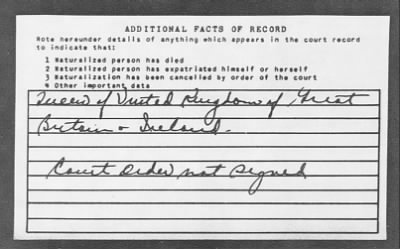 ADDITIONAL FACTS OF RECORD
Note hereunder details of anything which appears in the court record
to indicate that:
1 Naturalized person has died
2 Naturalized person has expatriated himself or herself
3 Naturalization has been cancelled by order of the court
4 Other important data
Queen of United Kingdom of Great
Britain & Ireland.
Court order not signed